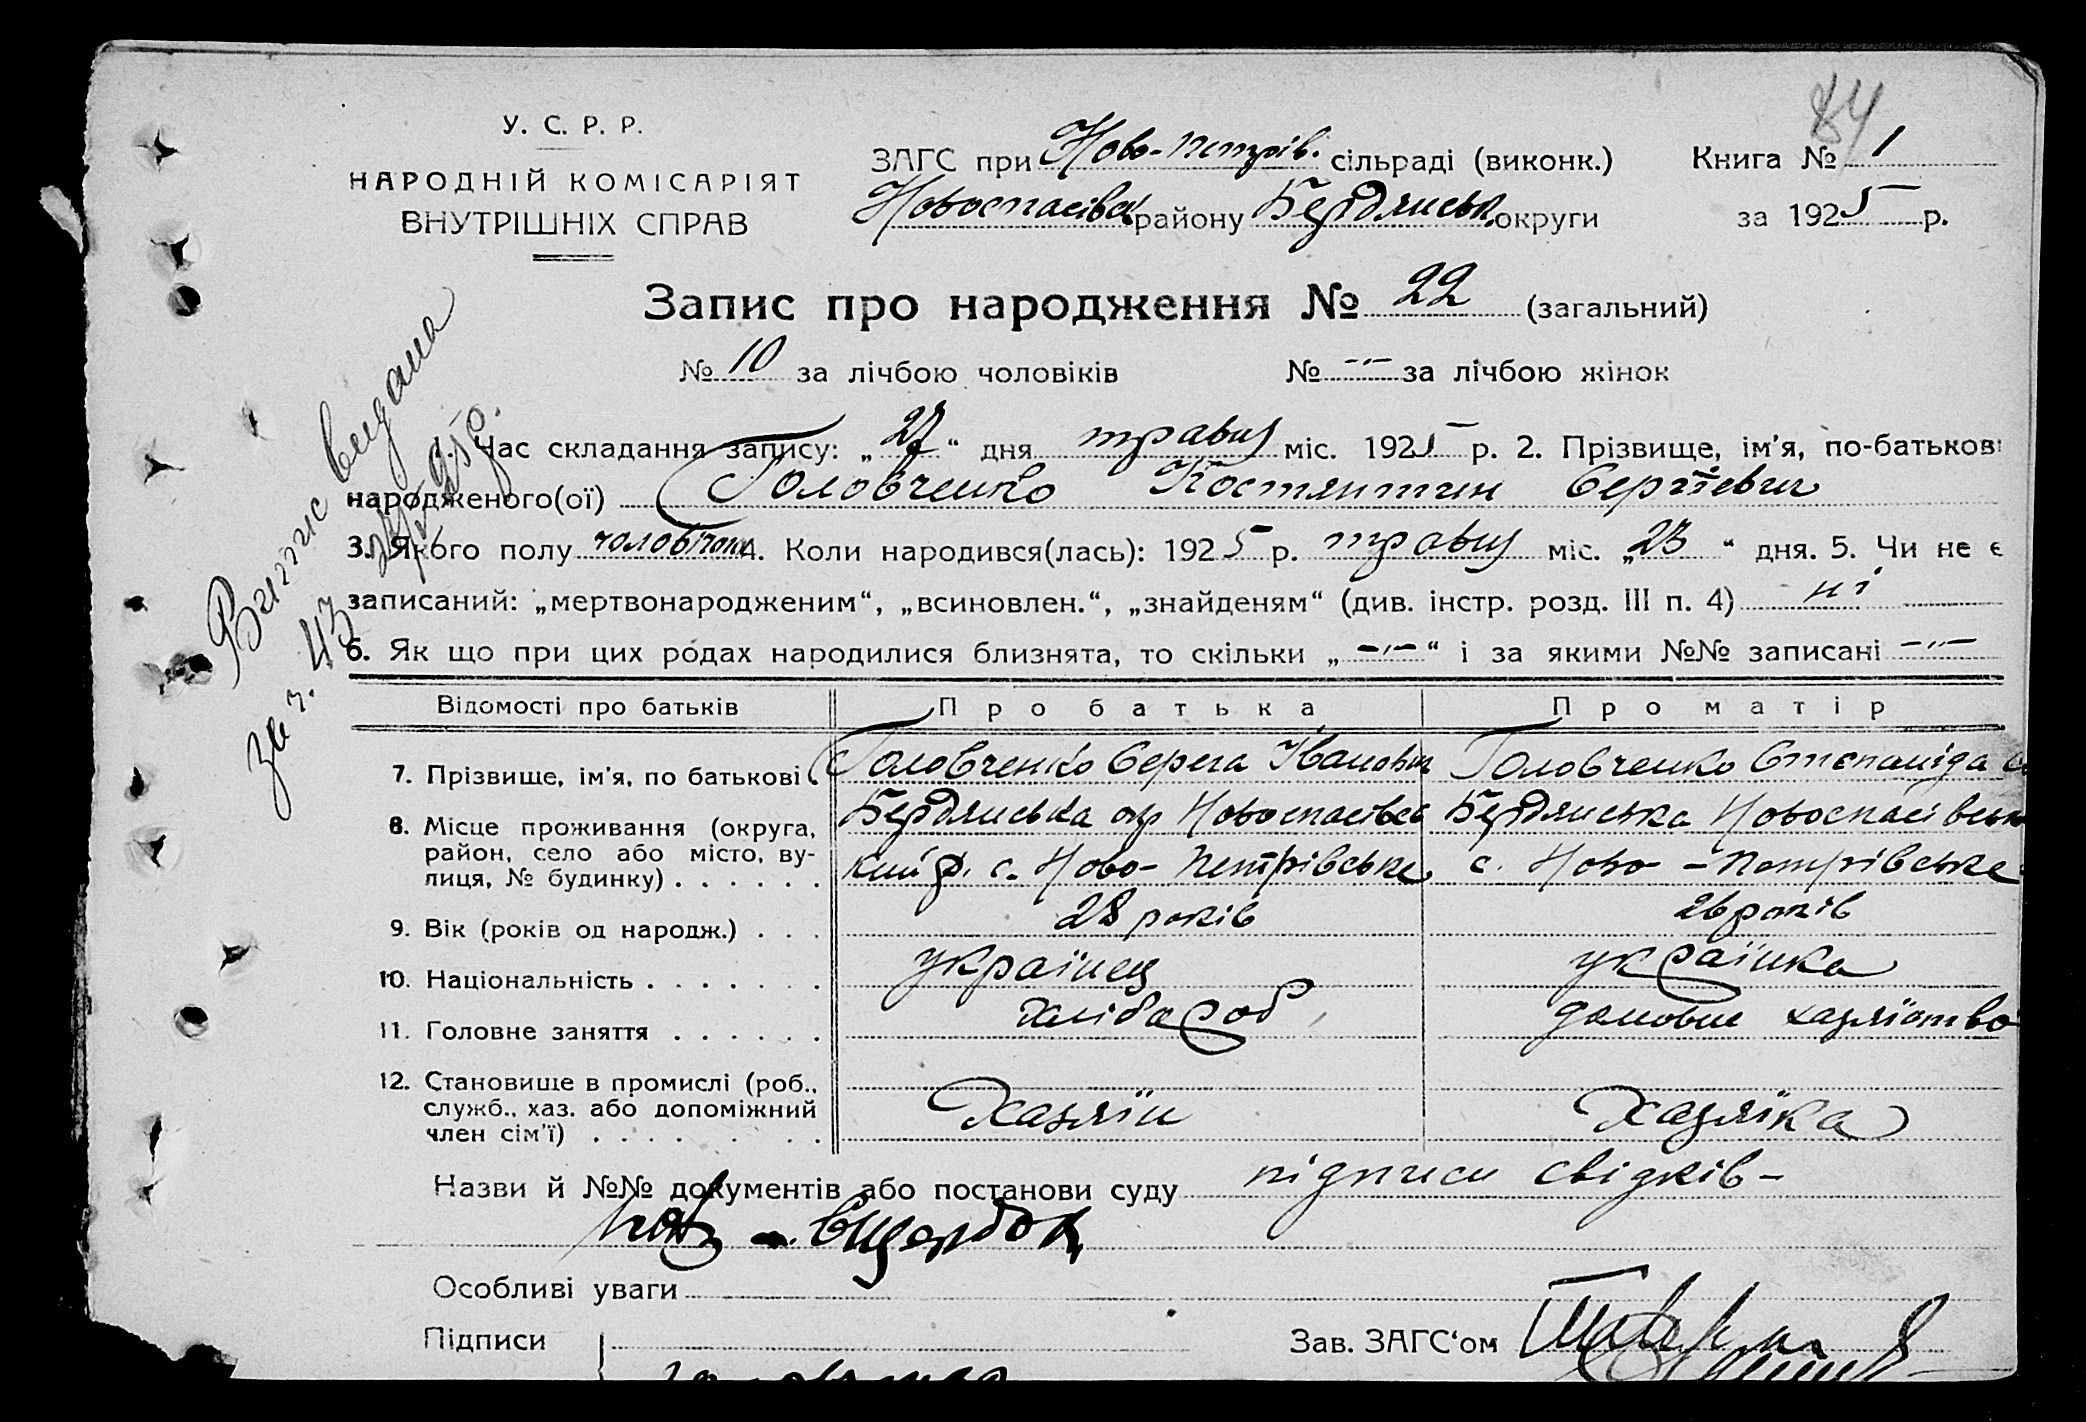 84
У. С. Р. Р.
НАРОДНІЙ КОМІСАРІЯТ
ВНУТРІШНІХ СПРАВ
ЗАГС при Ново-Петрів. сільраді (виконк.) Книга № 1
Новоспасівськ району Бердянськ. округи за 1925 р.
Запис про народження № 22 (загальний)
№ 10 за лічбою чоловіків № -„- за лічбою жінок
Випис видана
за ч. 43
1. Час складання запису: „27“ дня травня міс. 1925 р. 2. Прізвище, ім'я, по-батькові
народженого(ої) Головченко Костянтин Сергієвич
3. Якого полу чоловічого 4. Коли народився(лась): 1925 р. травня міс. „23“ дня. 5. Чи не є
записаний: „мертвонародженим“, „всиновлен.“, „знайденям“ (див. інстр. розд. III п. 4) ні
6. Як що при цих родах народилися близнята, то скільки „-„-“ і за якими №№ записані -„-
Відомості про батьків Про батька Про матір
7. Прізвище, ім'я, по батькові Головченко Серега Іванович Головченко Степаніда
8. Місце проживання (округа, Бердянська окр Новоспасівсь Бердянська Новоспасівськ
район, село або місто, ву-
лиця, № будинку) . . . . . . кий р. с. Ново-Петрівське с. Ново-Петрівське
9. Вік (років од народж.) . . . 28 років 26 років
10. Національність . . . . . . . українец українка
11. Головне заняття . . . . . . хлібороб домовне хазяїство
12. Становище в промислі (роб.,
служб., хаз. або допоміжний Хазяїн Хазяїка
член сім'ї) . . . . . . . .
Назви й №№ документів або постанови суду підписи свідків-
Особливі уваги
Підписи Зав. ЗАГС'ом